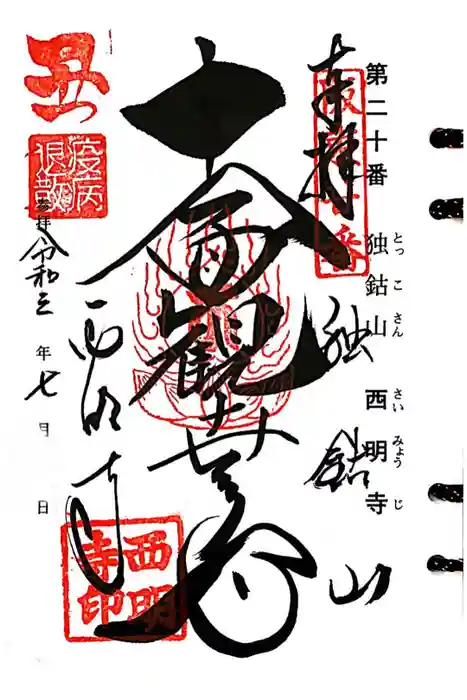 第二十番 独鈷山 西明寺
とっ こ さん さい みょう じ
奉拝
独鈷山
十一面観世音
西明寺
西明寺印
丑
疫病退散
参拝 令和三年七月 日